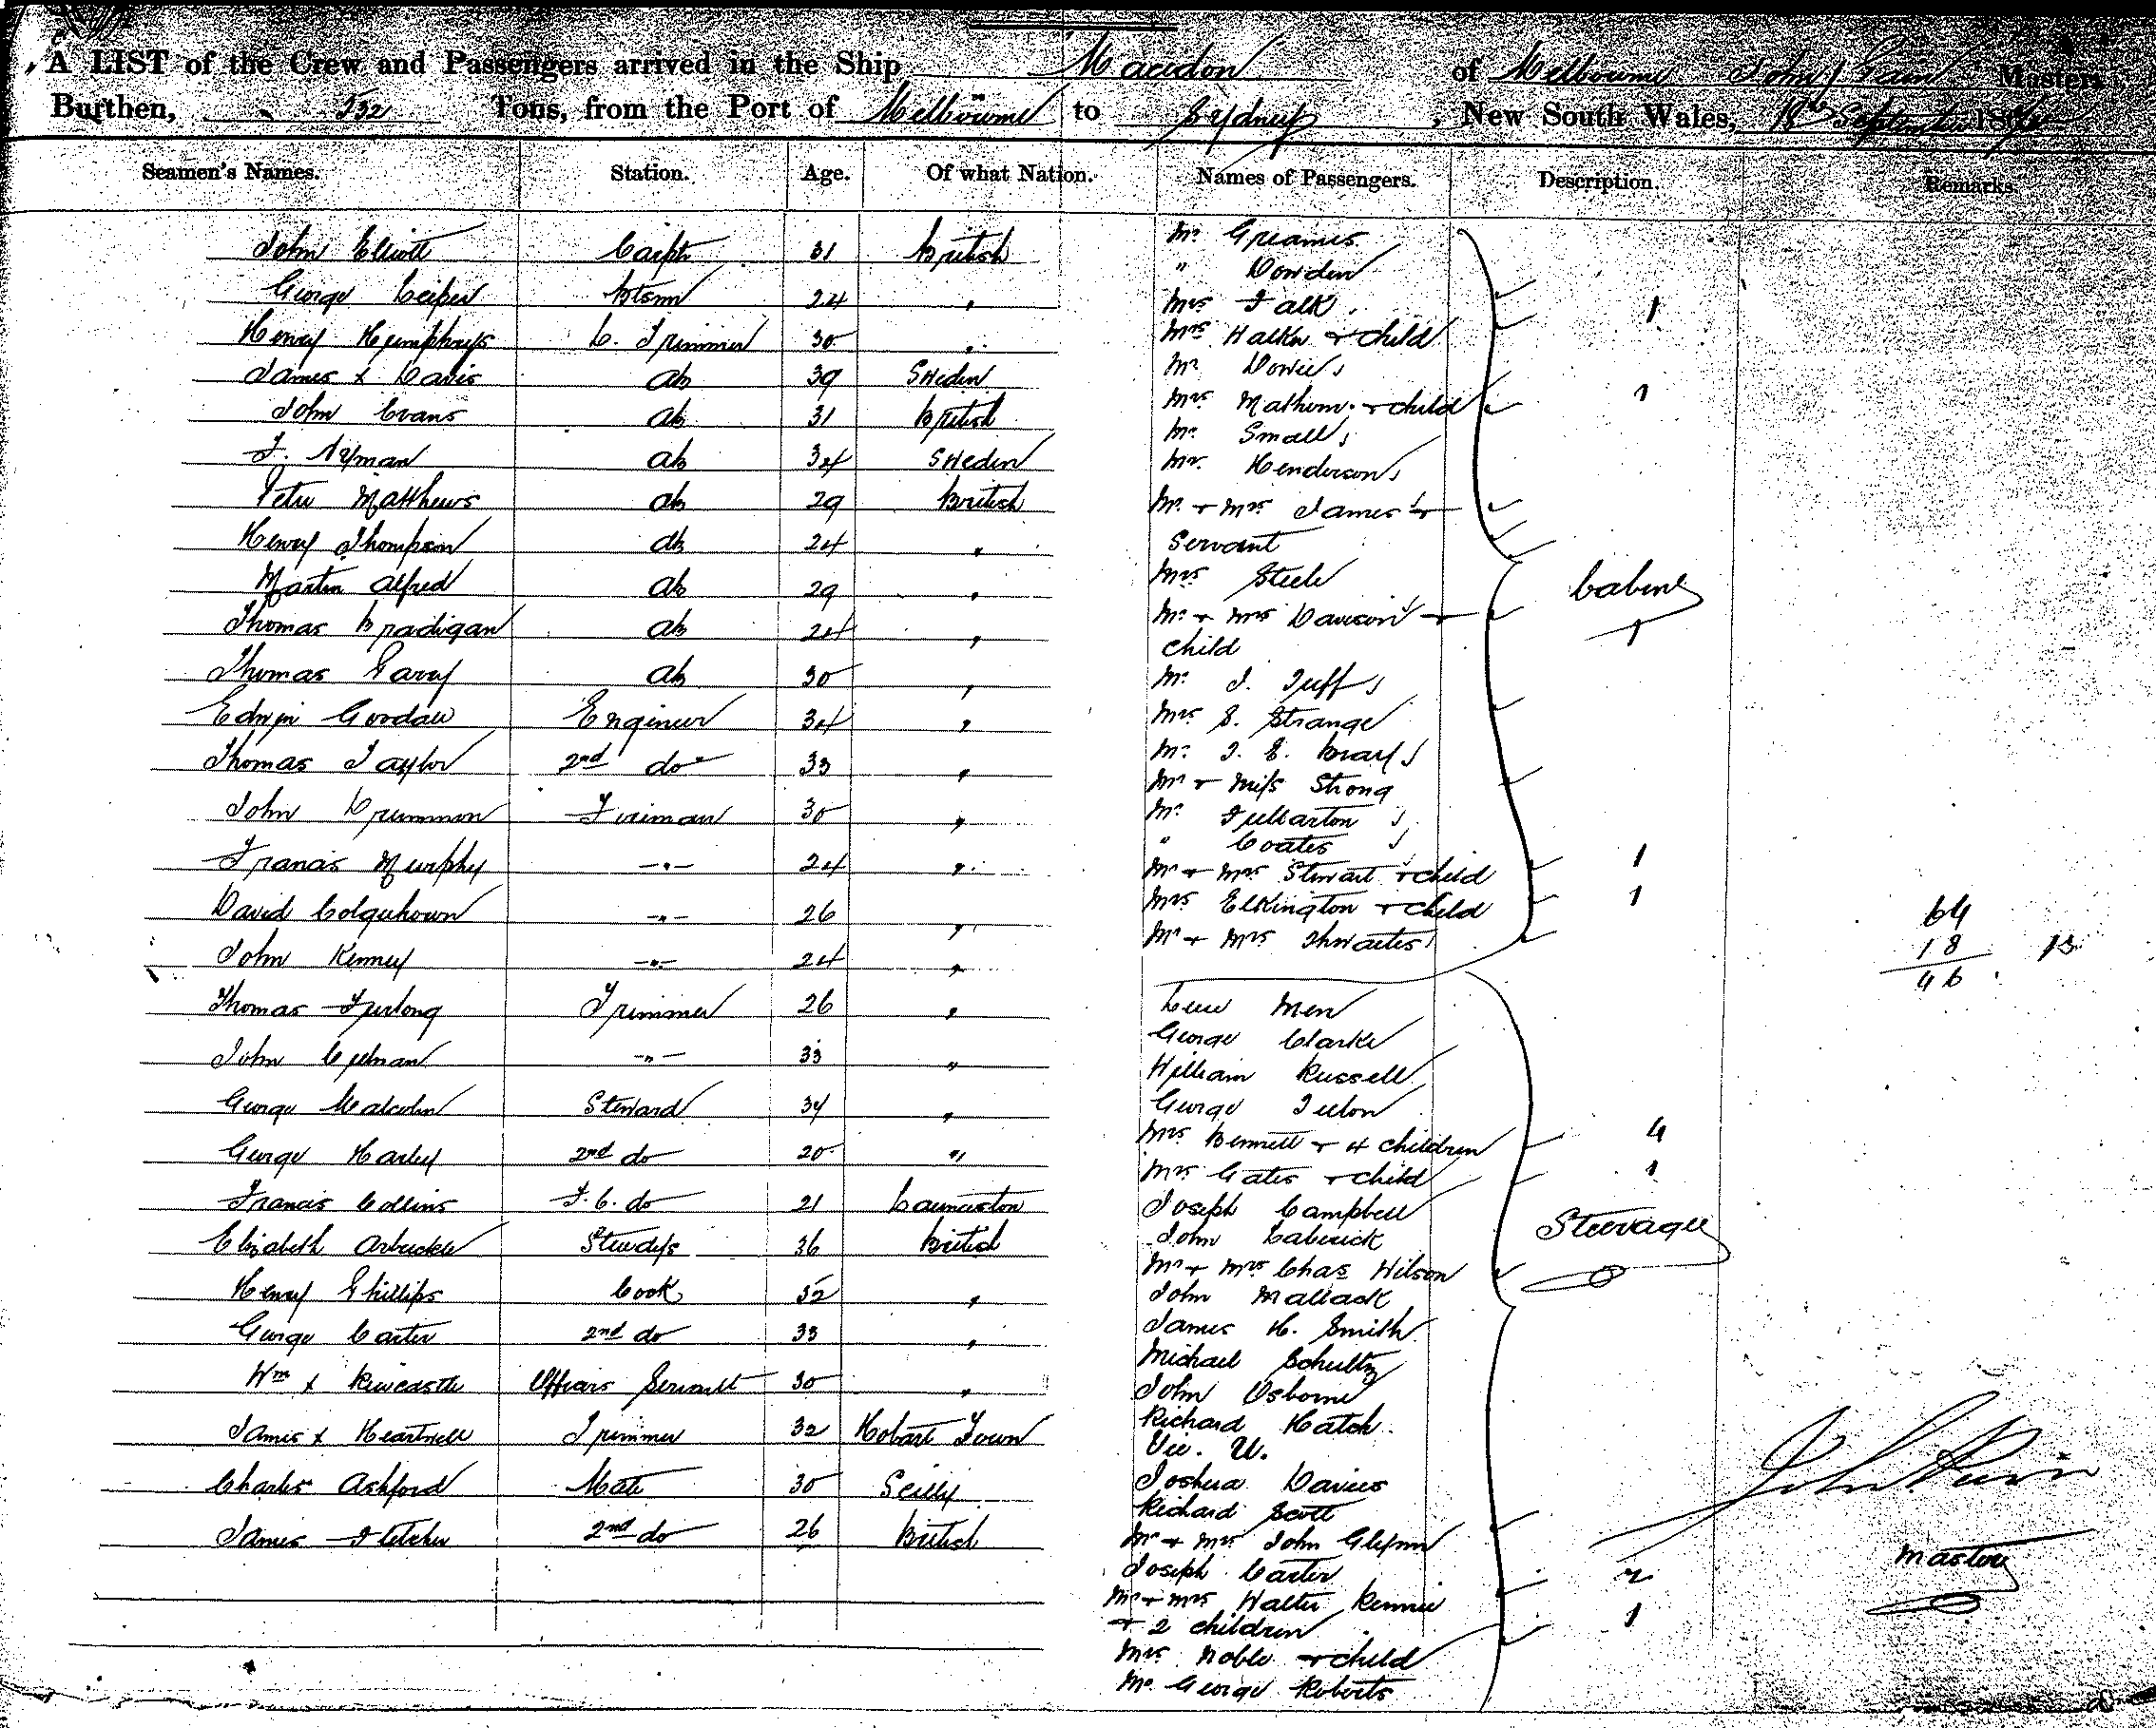 A LIST of the Crew and Passengers arrived in the Ship Macedon of Melbourne John Master,
Burthen, 532 Tons, from the Port of Melbourne to Sydney, New South Wales, 18th September 18
Seamen's Names. Station. Age. Of what Nation. Names of Passengers. Description. Remarks.
John Elliott Carptr 31 British
George Leiper Btsmn 24 "
Henry Humphreys L. Trimmer 30 "
James x Davis ab 39 Sweden
John Evans ab 31 British
F. Nyman ab 34 Sweden
Peter Matthews ab 29 British
Henry Thompson ab 24 "
Martin Alfred ab 29 "
Thomas Bradigan ab 24 "
Thomas Garry ab 30 "
Edwin Goodall Engineer 34 "
Thomas Taylor 2nd do 33 "
John Drummon Fireman 30 "
Francis Murphy -"- 24 "
David Colquhoun -"- 26 "
John Kenney -"- 24 "
Thomas Furlong Trimmer 26 "
John -"- 33 "
George Malcolm Steward 34 "
George Harley 2nd do 20 "
Francis Collins F.C. do 21 Launceston
Elizabeth Arbuckle Stewdss 36 British
Henry Phillips Cook 32 "
George Carter 2nd do 33 "
Wm x Officers Servant 30 "
James x Heartwell Trimmer 32 Hobart Town
Charles Ashford Mate 30 Scilly
James Fletcher 2nd do 26 British
Mr Greames
" Dowden
Mrs Falk
Mrs Walker + child 1
Mr Dowie
Mrs Mathews + child 1
Mr Small
Mr Henderson
Mr + Mrs James +
Servant
Mrs Steele
Mr + Mrs Davison +
child
Mr J. Tuff
Mrs S. Strange
Mr J. E. Bray
Mr + Miss Strong
Mr Fullarton
" Coates
Mr + Mrs Stewart + child 1
Mrs Elkington + child 1
Mr + Mrs Thwaites
Cabin
1
Men
George Clarke
William Russell
George Tulon
Mrs Bennett + 4 children 4
Mrs Gates + child 1
Joseph Campbell
John
Mr + Mrs Chas Wilson
John Mallack
James H. Smith
Michael Schultz
John Osborne
Richard Hatch
Joshua Davies
Richard Scott
Mr + Mrs John Glynn
Joseph Carter
Mr + Mrs Walter Rennie
+ 2 children 2
Mrs Noble + child 1
Mr George Roberts
Steerage
64
18 13
46
John
Master